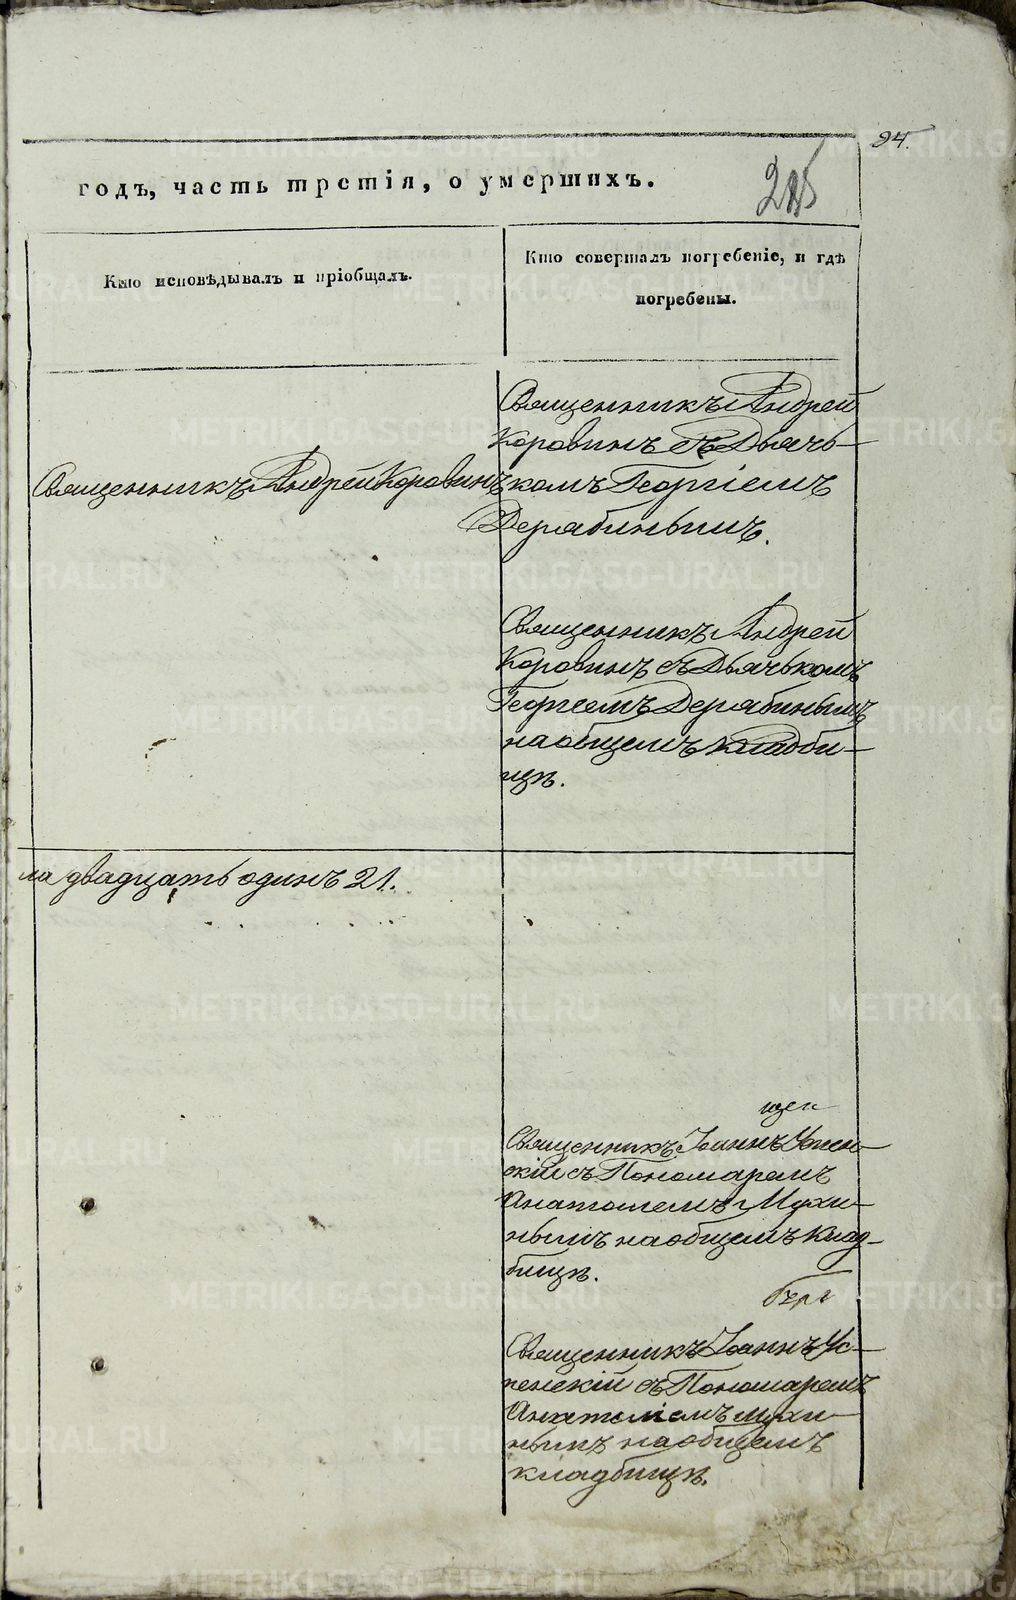 94.
годъ, часть третія, о умершихъ.
Кто исповѣдывалъ и пріобщалъ.
Кто совершалъ погребеніе, и гдѣ
погребены.
Священникъ Андрей Коровинъ
Священникъ Андрей
Коровинъ съ Дьячь-
комъ Георгіемъ
Дерябинымъ.
Священникъ Андрей
Коровинъ съ Дьячькомъ
Георгіемъ Дерябинымъ
на общемъ кладби-
щѣ.
ла двадцать одинъ 21.
Священникъ Іоаннъ Успен-
скій съ Пономаремъ
Анатоліемъ Мухи-
нымъ на общемъ клад-
бищѣ.
Священникъ Іоаннъ Ус-
пенскій съ Пономаремъ
Анатоліемъ Мухи-
нымъ на общемъ
кладбищѣ.
METRIKI.GASO-URAL.RU